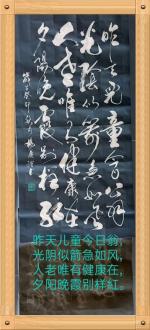 昨天兒童今日翁
光陰似箭急如風
人老唯有健康在
夕陽晚霞別樣紅
昨天儿童今日翁,
光阴似箭急如风,
人老唯有健康在,
夕阳晚霞别样红.